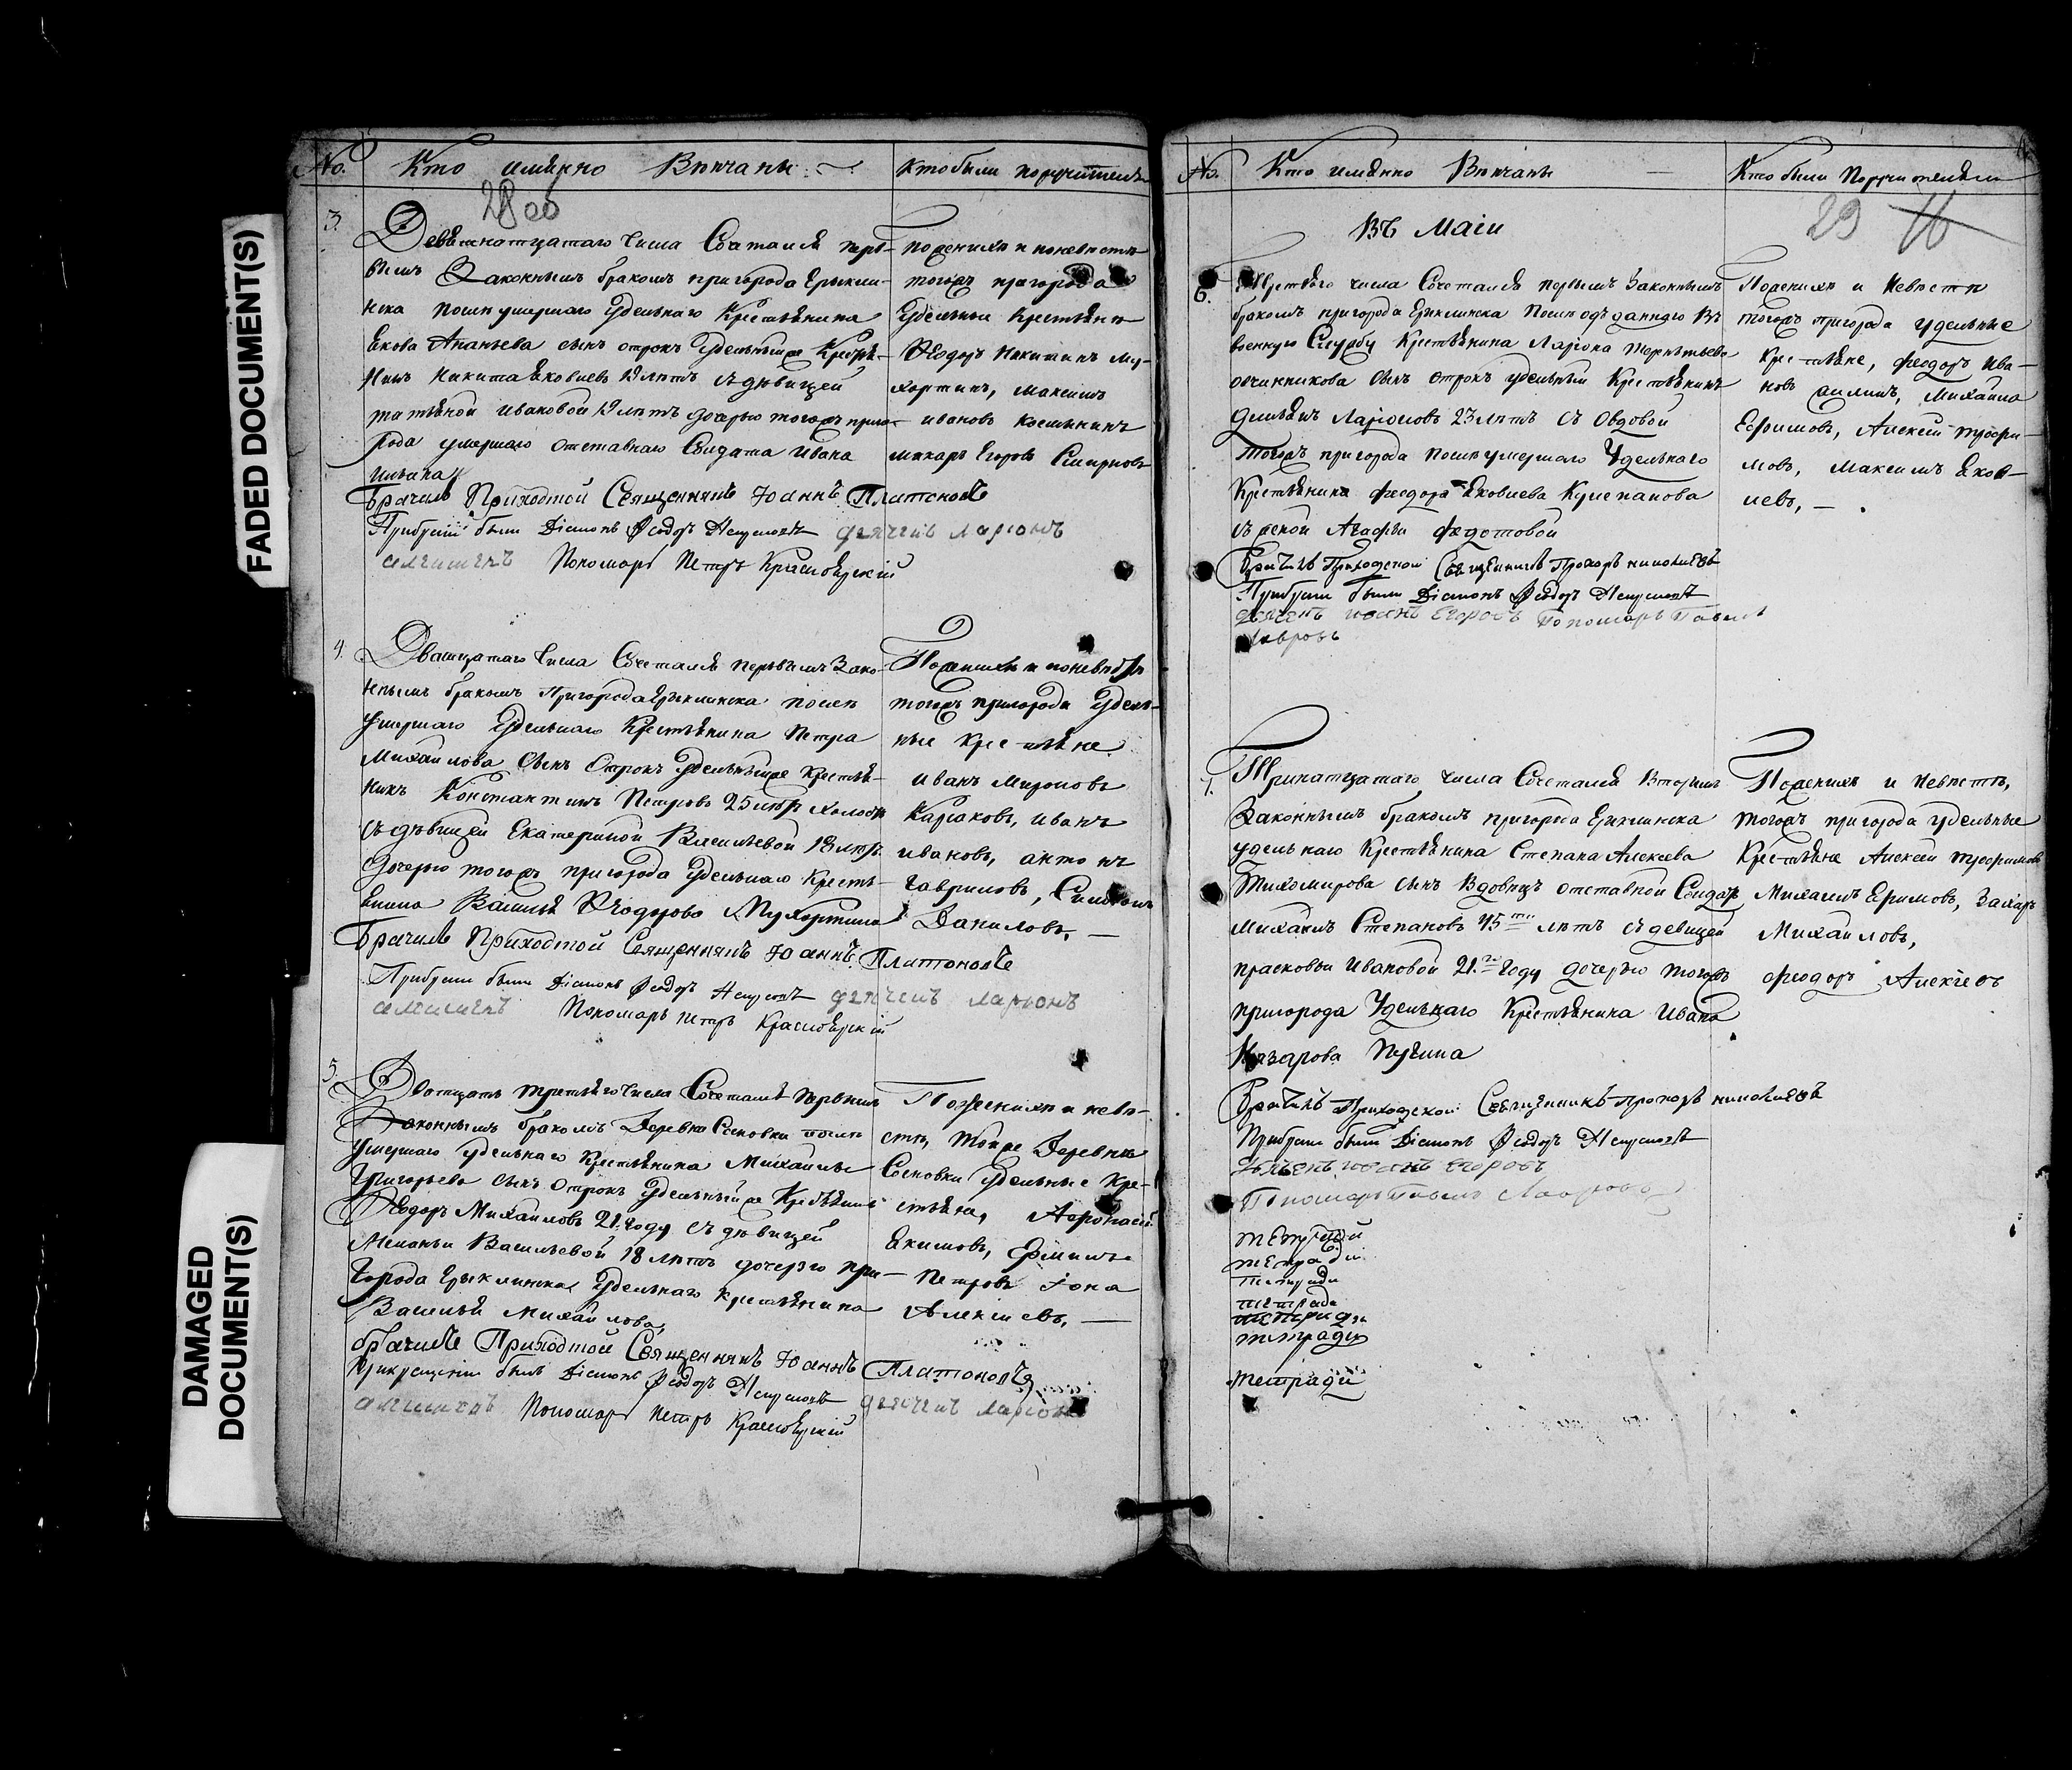 FADED DOCUMENT(S)
DAMAGED DOCUMENT(S)
No. Кто имянно Вѣнчаны Кто были поручители
28 об
3. Девѣтнатцатаго числа Сочетался пер-
вымъ Законнымъ бракомъ пригорода Ерыкли-
нска послѣ умершаго Удельнаго Крестьянина
Якова Ананьева сынъ отрокъ Удельныйже Крестья-
нинъ Никита Яковлевъ 19 лѣтъ съ дѣвицей
татьяной ивановой 19 лѣтъ дочерью тогожъ приго-
рода умершаго отставнаго Солдата Ивана
Брачилъ Приходской Священникъ Іоаннъ Платоновъ
Прибраніи были Діаконъ Ѳеодоръ дьячекъ Ларіонъ
Пономарь Петръ Красноярскій
По женихѣ и по невѣстѣ
тогожъ пригорода
Удельныи Крестьянѣ
Ѳеодоръ Никитинъ Му-
хортинъ, Максимъ
ивановъ
макаръ Егоровъ Смирновъ
4. Двацатаго числа Сочетался первымъ Зако-
ннымъ бракомъ Пригорода Ерыклинска послѣ
умершаго Удельнаго Крестьянина Петра
Михайлова сынъ Отрокъ Удельныйже Крестья-
нинъ Константинъ Петровъ 25 лѣтъ
съ дѣвицей Екатериной Васильевой 18 лѣтъ
дочерью тогожъ пригорода Удельнаго Кресть-
янина Василья Ѳеодорова Мухортина
Брачилъ Приходской Священникъ Іоаннъ Платоновъ
Прибрани были Діаконъ Ѳеодоръ дьячекъ Ларіонъ
Пономарь Петръ Красноярскій
По женихѣ и по невѣстѣ
тогожъ пригорода Удель-
ные крестьяне
иванъ Мироновъ
иванъ
ивановъ, антонъ
Гавриловъ,
Даниловъ, —
5. Дватцать третьяго числа Сочетался первымъ
Законнымъ бракомъ Деревни Сосновки послѣ
умершаго удельнаго Крестьянина Михаилы
Григорьева сынъ Отрокъ Удельныйже Крестьянинъ
Ѳеодоръ Михайловъ 21 году съ дѣвицей
Меланьи Васильевой 18 лѣтъ дочерью при-
города Ерыклинска Удельнаго крестьянина
Василья Михайлова
брачилъ Приходской Священникъ Іоаннъ Платоновъ
были Діаконъ Ѳеодоръ дьячекъ Ларіонъ
Пономарь Петръ Красноярскій
По женихѣ и невѣ-
стѣ, тойже Деревни
Сосновки Удельные Кре-
стьяна, Афонасій
Екимовъ,
Петровъ Іона
Алексіевъ, —
No. Кто имянно Вѣнчаны — Кто были Поручителями
29
Въ Маіи
6. числа Сочетался первымъ Законнымъ
бракомъ пригорода Ерыклинска Послѣ одъданнаго Въ
военную Службу Крестьянина Ларіона терентьева
овчинникова сынъ отрокъ удельный Крестьянинъ
Ларіоновъ 23 лѣтъ съ Овдовой
Тогожъ пригорода послѣ умершаго Удельнаго
Крестьянина Феодора Яковлева
женой Агафьи Федотовой
Брачилъ Приходской Священникъ Прохоръ николаевъ
Прибрани были Діаконъ Ѳеодоръ
Дьячекъ иоанъ Егоровъ Пономарь Павелъ
Лавровъ
По женихѣ и Невѣстѣ
тогожъ пригорода удельные
крестьяне, феодоръ Ива-
новъ Михайла
Ефимовъ, Алексѣй трофи-
мовъ, Максимъ Яков-
левъ, —
7. Тринатцатаго числа Сочетался Вторымъ
Законнымъ бракомъ пригорода Ерыклинска
удельнаго Крестьянина Степана Алексеева
Тихомирова сынъ Вдовецъ отставной Солдатъ
Михаилъ Степановъ 45ти лѣтъ съ девицей
прасковьи Ивановой 21го году дочерью тогожъ
пригорода Удельнаго Крестьянина Ивана
Назарова
Брачилъ Приходской Священникъ прохоръ николаевъ
Прибрани были Діаконъ Ѳеодоръ
Дьячекъ иоанъ Егоровъ
Пономарь Павелъ Лавровъ
По женихѣ и Невѣстѣ,
тогожъ пригорода удельные
Крестьяне Алексѣй трофимовъ
Михаилъ Ефимовъ, Захаръ
Михайловъ,
феодоръ Алексѣевъ
тетради
тетради
тетради
тетради
тетради